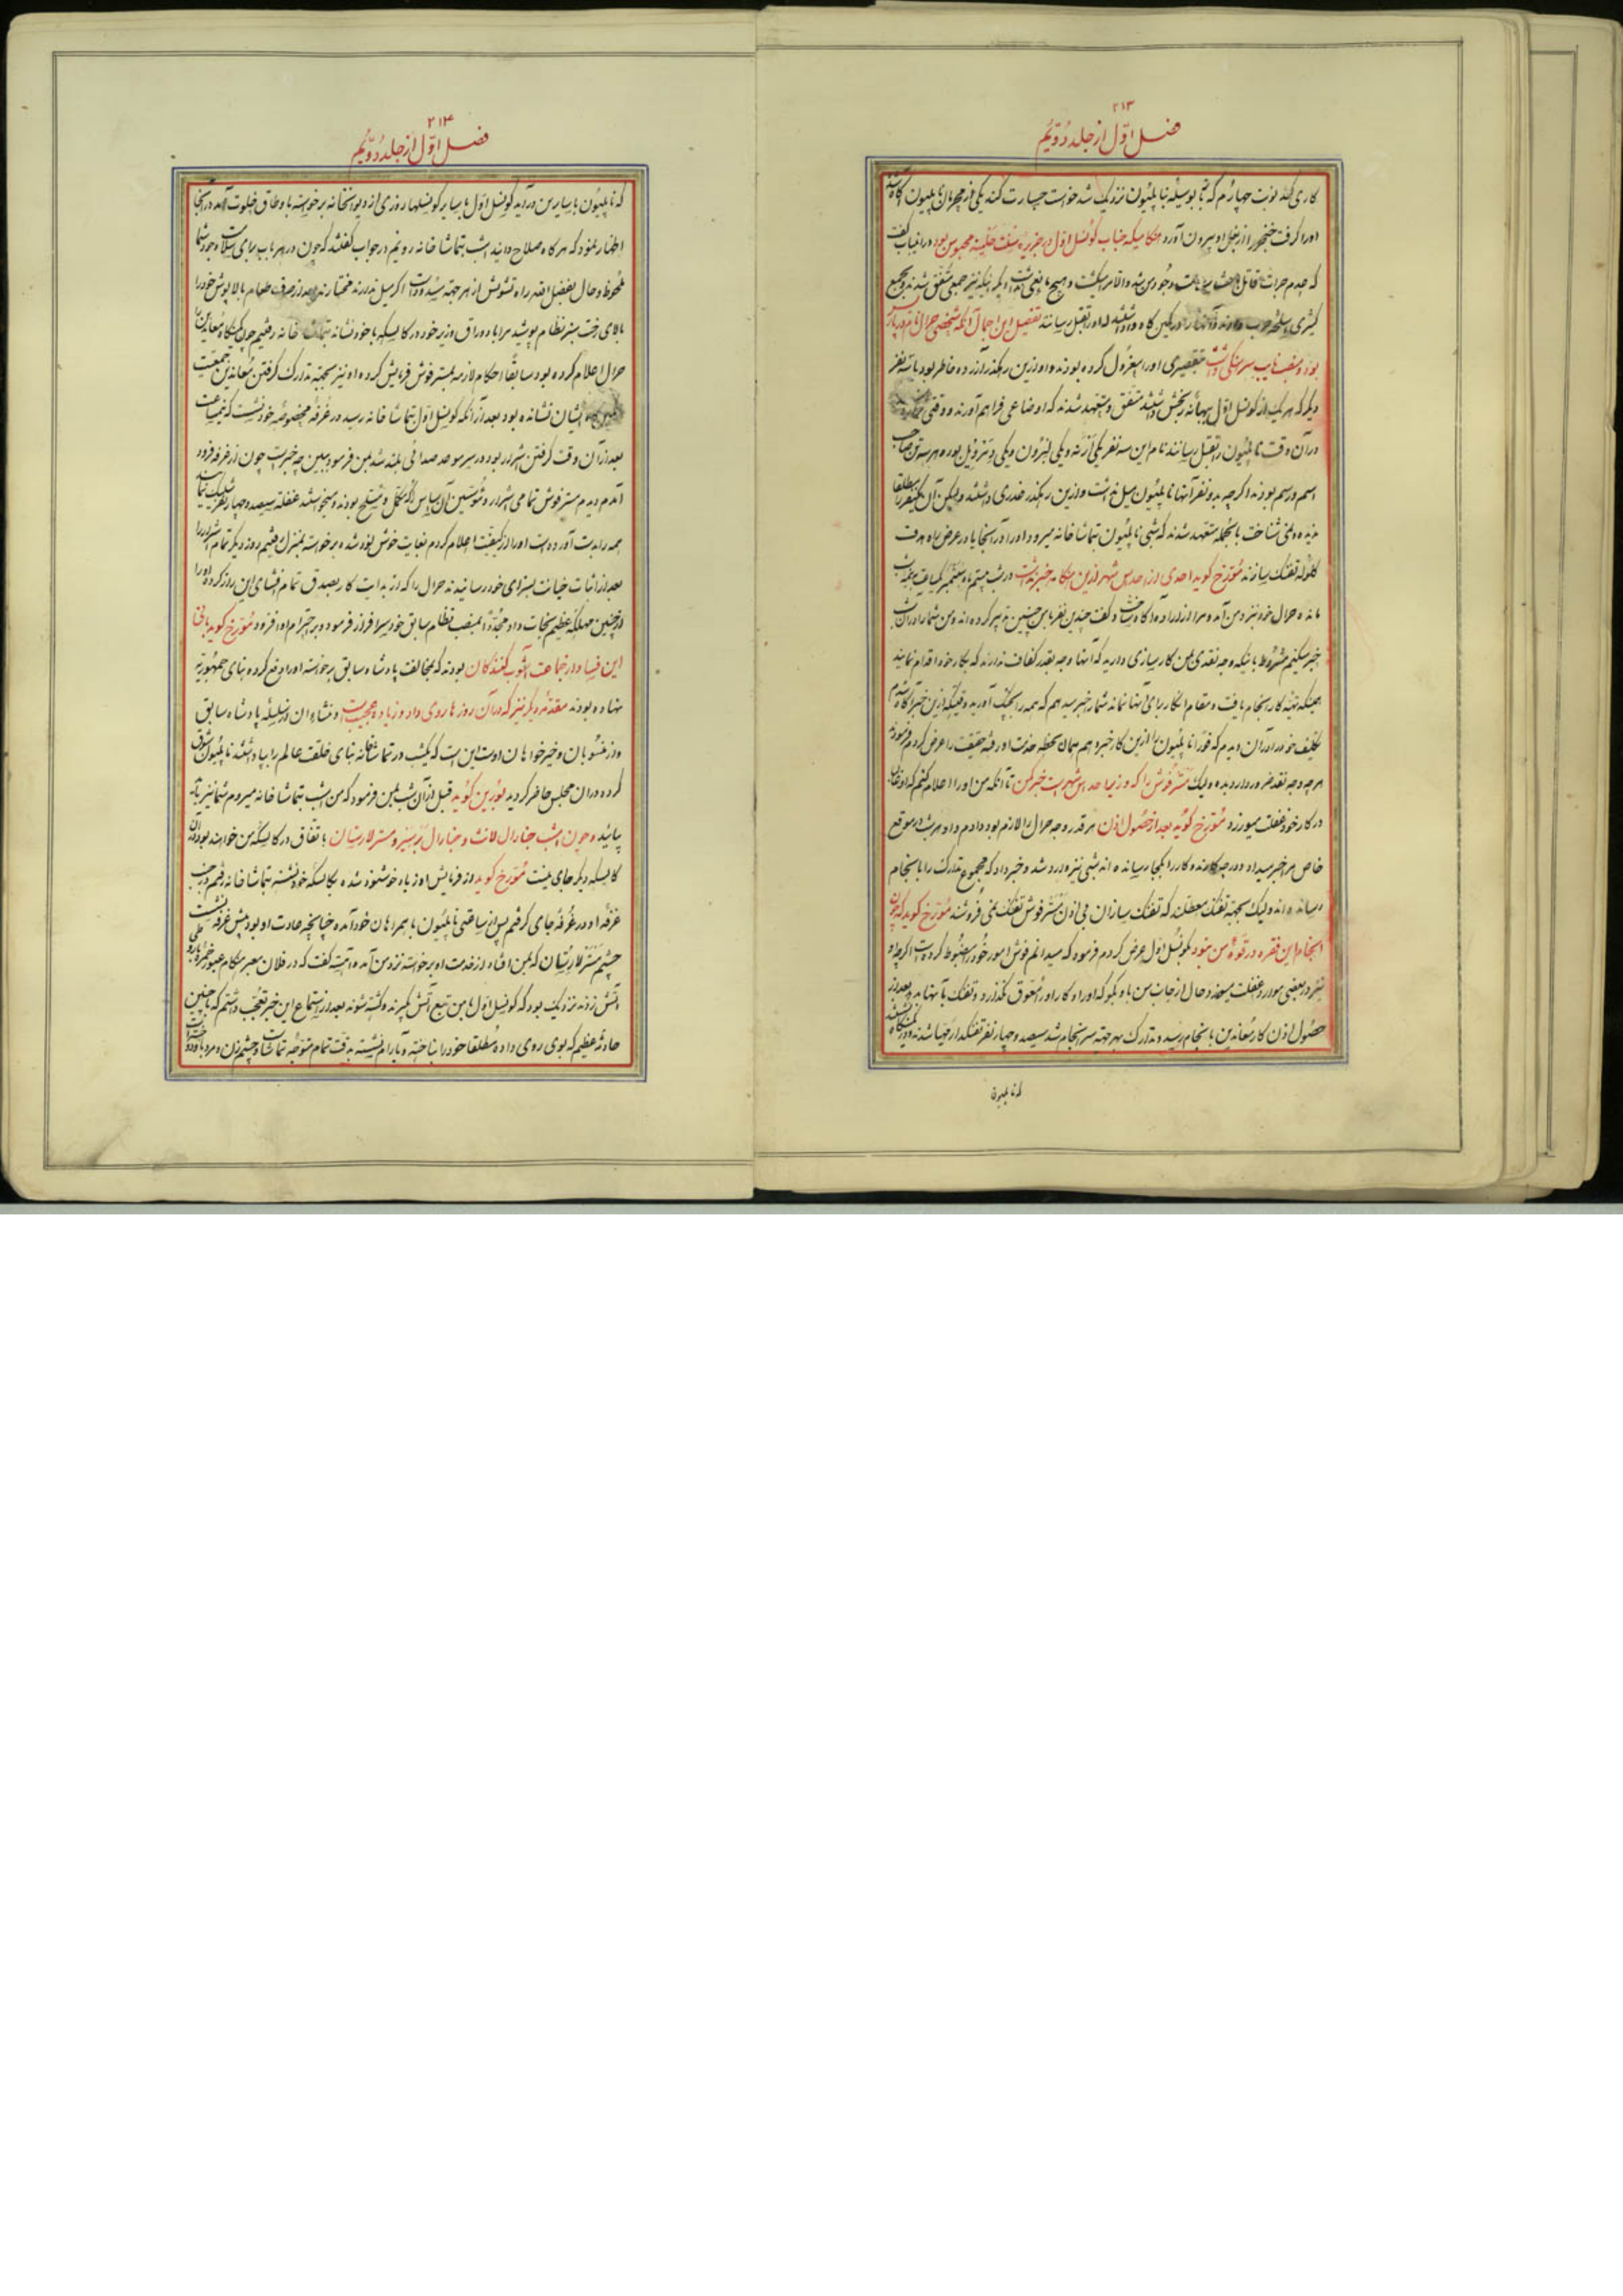 ۲۱۳
فصل اوّل از جلد دوّیُم
کاری کند نوبت چهارم که بوسیله بناپلیُون نزدیک شد خواست جسارت کند یکی از محرمان ناپلیون آگاه شده
اورا گرفت خنجر را از بغل او بیرون آورد هنگامیکه جناب کونسل اوّل در جزیره محبوس بود در انباب گفت
که عدم جرأت قاتل باعث سلامت وجود من شد والا مرا میکشت و هیچ مانعی نداشت دیگر اینکه نیز جمعی متّفق شدند و مجمع
کثیری اسلحه حرب داده در کمین گاه واداشتند که اورا بقتل رسانند تفصیل این اجمال آنکه شخصی حرال نام در پاریس
بود و منصب نایب سرهنگی داشت بتقصیری اورا معزول کرده بودند و او ازین رهگذر آزرده خاطر بود با سه نفر
دیگر که هر یک از کونسل اوّل بهانه رنجش داشتند متّفق و متعهد شدند که اوضاعی فراهم آورند و وقتی
در آن وقت ناپلیُون را بقتل رسانند نام این سه نفر یکی و یکی و یکی بود و هر سه تن صاحب
اسم و رسم بودند و اگر چه بدو نفر آنها ناپلیُون میل نداشت و ازین رهگذر خدری داشتند ولیکن آن یکنفر را مطلقا
ندیده و نمی شناخت بالجمله متعهد شدند که شبی ناپلیُون بتماشاخانه میرود اورا در آنجا یا در عرض راه هدف
کلوله تفنک سازند مُورّخ کوید احدی از احداس شهر ازین هنگامه خبر نداشت در شب بیستم ماه سپتمبر یکساعت بنصف شب
مانده حرال خود نزد من آمد و مرا از اراده آگاه ساخت و گفت چندین نفر باین چنین تدبیر کرده اند و من شما را از آن
خبر میکنم مشروط باینکه وجه نقدی بمن کارسازی دارید که آنها وجه بقدر کفاف ندارند که بکار خود اقدام نمایند
همینکه تهیّه کار سرانجام یافت و مقام انکار برای آنها نماند شما را خبر میدهم که همه را بچنگ آورید وقتیکه ازین خبر آگاه شدم
تکلیف خود را در آن دیدم که فوراً ناپلیُون را ازین کار خبر دهم همان لحظه خدمت او رفته حقیقت را عرض کردم فرمودند
هر چه وجه نقد ضرور دارد بده ولیک مستر فوش را که وزیر احداس شهر است خبر مکن تا آنکه من او را اعلام کنم که او غالباً
در کار خود غفلت میورزد مُورّخ کوید بعد از حصُول اذن هر قدر وجه حرال را لازم بود دادم و او هر شب در موقع
خاص مرا خبر میداد و در چه کارند و کار را بکجا رسانده اند شبی نیز وارد شد و خبر داد که مجموع تدارک را بانجام
رسانده اند ولیک بجهه تفنک معطلند که تفنک سازان بی اذن مستر فوش تفنک نمی فروشند مُورّخ کوید که چون
انجام این فقره در قوّهٔ من نبود بکونسُل اوّل عرض کردم فرمود که میدانم فوش امور خود را مضبوط کرده است اگر چه او
نیز در بعضی موارد غفلت میکند و حال از جانب من باو بگو که او را در کار او را معوّق نگذارد و تفنک بآنها بدهد بعد از
حصُول اذن کار معاندین بانجام رسید و تدارک بهر جهته سرانجام شد سیصد و چهار نفر تفنگدار مهیا شدند و در کمینگاه نشستند
که ناپلیون
۲۱۴
فصل اوّل از جلد دوّیُم
که ناپلیُون با سایرین در آید کونسل اوّل با سایر کونسلها روزی از دیوانخانه برخواسته باوطاق خلوت آمد در آنجا
اظهار نمود که هر گاه صلاح دانید امشب بتماشاخانه رویم در جواب گفتند که چون در هر باب برای سلامت وجود شما
ملحوظ و حال بفضل الله راه تشویش از هر جهته مسدود است اگر میل ندارند مختارند بعد از صرف طعام بالاپوش خود را
بالای رخت سیز نظام پوشید مرا با دوراق وزیر خود در کالسکه با خود نشانده بتماشاخانه رفتیم چون کمینگاه معاندین را
حرال اعلام کرده بود سابقاً احکام لازمه بمستر فوش فرمایش کرده او نیز بجهته تدارک گرفتن معاندین جمعیت
در کمین گاه ایشان نشانده بود بعد از آنکه کونسل اوّل بتماشاخانه رسید در غُرفهٔ مخصوصه خود نشست که نیمساعت
بعد از آن وقت گرفتن اشرار بود در سر موعد صدائی بلند شد بمن فرمود ببین چه خبر است چون از غرفه فرود
آمدم دیدم مستر فوش تمامی اشرار و مؤسّسین آن اساس را که مکمّل و مسلّح بودند و میخواستند غفلتة سیصد و چهار نفر شلیک نمایند
همه را بدست آورده است او را از کیفیّت اعلام کردم بغایت خوش نود شده برخواسته بمنزل رفتیم روز دیگر تمام اشرار را
بعد از اثبات خیانت بسزای خود رسانیدند حرال را که از بدایت کار بصدق تمام افشای این راز کرده او را
از چنین مهلکهٔ عظیم نجات داد مجدّداً بمنصب نظام سابق خود سرافراز فرمود و بر احترام او افزود مُورّخ کوید بانی
این فساد در جماعت آشوب کنندکان بودند که بمخالفت پادشاه سابق برخواسته او را دفع کرده بنای جمهوریّه
نهاده بودند مقدّمه دیگر نیز که در آن روزها روی داد و زیاده عجیب است و منشاء ان از سلسله پادشاه سابق
و از منسوبان و خیر خواهان اوست این است که یکشب در تماشاخانه بنای خلقت عالم را بپا داشتند ناپلیُون شوق
کرده در ان مجلس حاضر گردید بُورّین کوید قبل از آن شب بمن فرمود که من امشب بتماشاخانه میروم شما نیز با
بیائید و چون امشب جنارال لانت و جنارال برتیر و مستر لارستان باتفّاق در کالسکهٔ من خواهند بود در ان
کالسکه دیگر جای نیست مُورّخ کوید از فرمایش او زیاد خوشنود شده بکالسکه خود نشسته بتماشاخانه رفتم در جنب
غرفهٔ او در غُرفه جای گرفتم پس از ساعتی ناپلیُون با همراهان خود آمد و چنانچه عادت او بود پیش غرفه نشست
چشم مستر لارستان که بمن افتاد از خدمت او برخواسته نزد من آمد و آهسته گفت که در فلان معبر هنگام عبور خمره باروطی
آتش زدند نزدیک بود که کونسل اوّل با من تبع آتش بگیرند و کشته شوند بعد از استماع این خبر تعجّب داشتم که با چنین
حادثهٔ عظیم که بوی روی داده مُطلقا خود را نباخته و بآرام نشسته بدقّت تمام متوجّه تماشا است و چشم زن و مرد باو